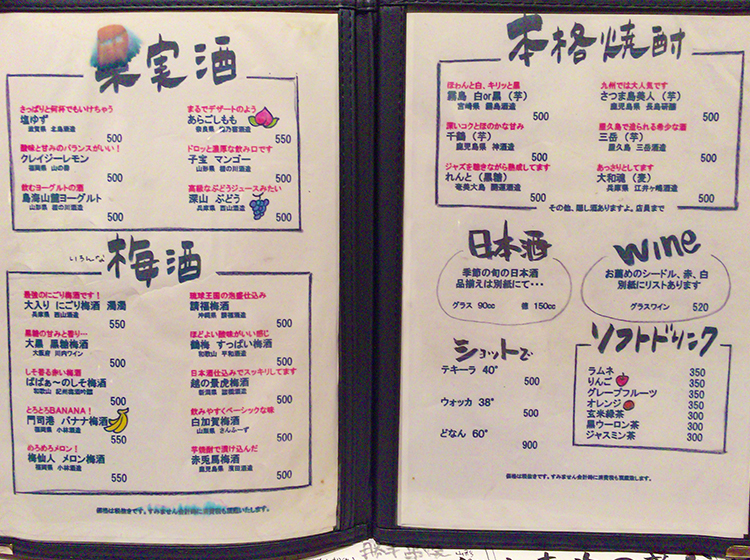 果実酒
さっぱりと何杯でもいけちゃう
塩ゆず
滋賀県 北島酒造
500
酸味と甘みのバランスがいい！
クレイジーレモン
福岡県 山の壽
500
飲むヨーグルトの酒
鳥海山麓ヨーグルト
山形県 楯の川酒造
500
まるでデザートのよう
あらごしもも
奈良県 梅乃宿酒造
550
ドロッと濃厚な飲み口です
子宝 マンゴー
山形県 楯の川酒造
500
高級なぶどうジュースみたい
深山 ぶどう
兵庫県 西山酒造
500
いろんな
梅酒
最強のにごり梅酒です！
大入り にごり梅酒 濁濁
兵庫県 西山酒造
550
黒糖の甘みと香り…
大黒 黒糖梅酒
大阪府 河内ワイン
500
しそ香る赤い梅酒
ばばぁ～のしそ梅酒
和歌山 紀州高田酒造
500
とろとろBANANA！
門司港 バナナ梅酒
福岡県 小林酒造
550
めろめろメロン！
梅仙人 メロン梅酒
福岡県 小林酒造
550
琉球王国の泡盛仕込み
請福梅酒
沖縄県 請福酒造
500
ほどよい酸味がいい感じ
鶴梅 すっぱい梅酒
和歌山 平和酒造
500
日本酒仕込みでスッキリしてます
越の景虎梅酒
新潟県 諸橋酒造
500
飲みやすくベーシックな味
白加賀梅酒
山梨県 さんふーず
500
芋焼酎で漬け込んだ
赤兎馬梅酒
鹿児島県 濱田酒造
500
価格は税抜きです。すみません会計時に消費税も頂戴いたします。
本格焼酎
ほわんと白、キリッと黒
霧島 白or黒（芋）
宮崎県 霧島酒造
500
深いコクとほのかな甘み
千鶴（芋）
鹿児島県 神酒造
500
ジャズを聴きながら熟成してます
れんと（黒糖）
奄美大島 開運酒造
500
九州では大人気です
さつま島美人（芋）
鹿児島県 長島研醸
500
屋久島で造られる希少な酒
三岳（芋）
屋久島 三岳酒造
500
あっさりとしてます
大和魂（麦）
兵庫県 江井ヶ嶋酒造
500
その他、隠し酒ありますよ。店員まで
日本酒
季節の旬の日本酒
品揃えは別紙にて・・・
グラス 90cc 徳 150cc
wine
お薦めのシードル、赤、白
別紙にリストあります
グラスワイン 520
ショットで
テキーラ 40°
500
ウォッカ 38°
500
どなん 60°
900
ソフトドリンク
ラムネ 350
りんご 350
グレープフルーツ 350
オレンジ 350
玄米緑茶 300
黒ウーロン茶 300
ジャスミン茶 300
価格は税抜きです。すみません会計時に消費税も頂戴致します。